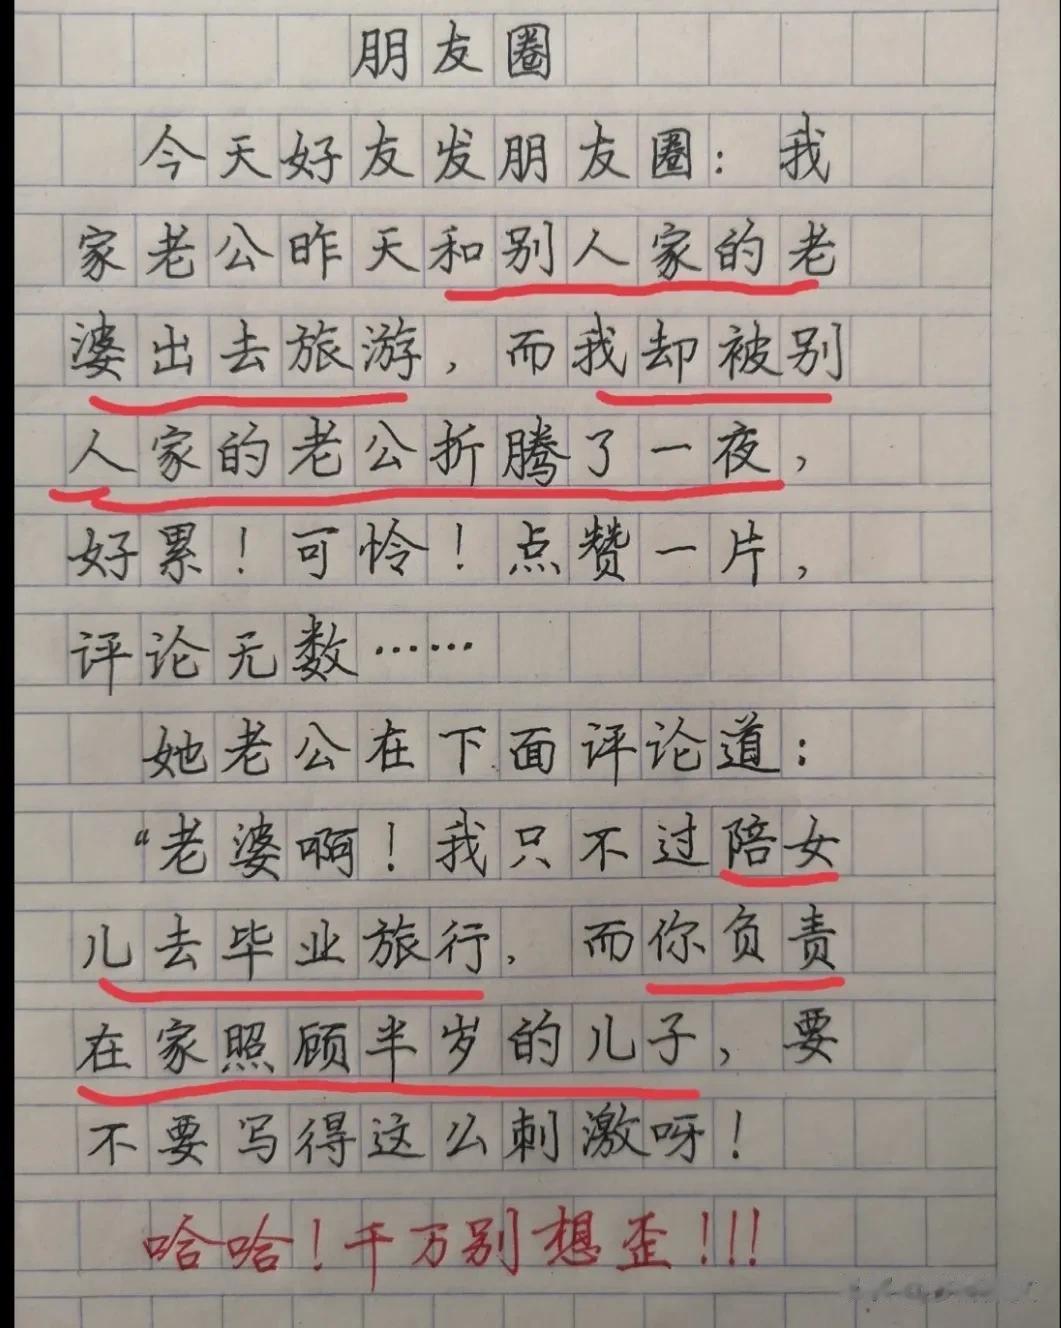 朋友圈
今天好友发朋友圈：我
家老公昨天和别人家的老
婆出去旅游，而我却被别
人家的老公折腾了一夜，
好累！可怜！点赞一片，
评论无数……
她老公在下面评论道：
“老婆啊！我只不过陪女
儿去毕业旅行，而你负责
在家照顾半岁的儿子，要
不要写得这么刺激呀！
哈哈！千万别想歪！！！